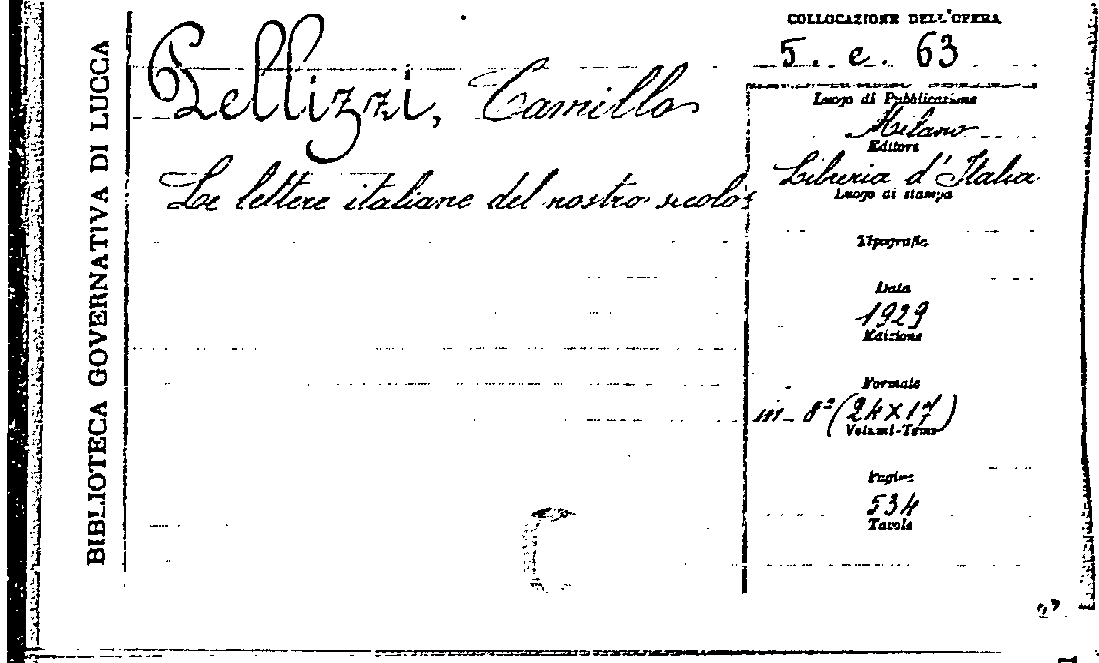 BIBLIOTECA GOVERNATIVA DI LUCCA
Pellizzi, Camillo
Le lettere italiane del nostro secolo
COLLOCAZIONE DELL'OPERA
5. e. 63
Luogo di Pubblicazione
Milano
Editore
Libreria d'Italia
Luogo di stampa
Tipografia
Data
1929
Edizione
Formato
in-8º (24×17)
Volumi-Tomi
Pagine
534
Tavole